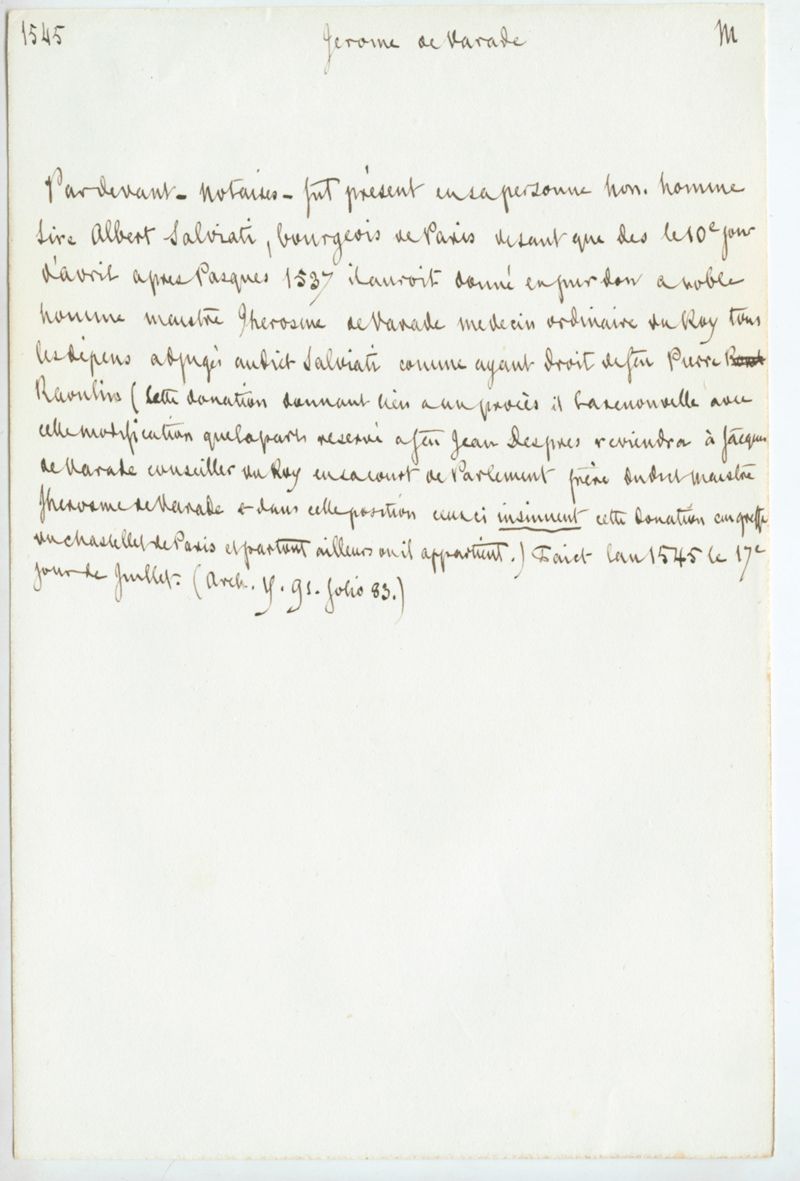 1545 Jerome de Varade M
Par devant – notaires – fut présent en sa personne hon. homme
Sire Albert Salviati, bourgeois de Paris disant que des le 10e jour
d'avril apres Pasques 1537 il auroit donné en pur don a noble
homme maistre Jherosme de Varade medecin ordinaire du Roy tous
les dépens adjugés audict Salviati comme ayant droit de feu Pierre
Raoulin (cette donation donnant lieu a un procès il la renouvelle avec
cette modification que la part reservé a feu Jean Despres reviendra à Jacques
de Varade conseiller du Roy en sa court de Parlement frère dudict maistre
Jherosme de Varade & dans cette position ceux ci insinuent cette donation au greffe
du chastellet de Paris et partout ailleurs ou il appartient.) Faict lan 1545 le 17e
jour de Juillet. (Arch. Y. 91. folio 83.)